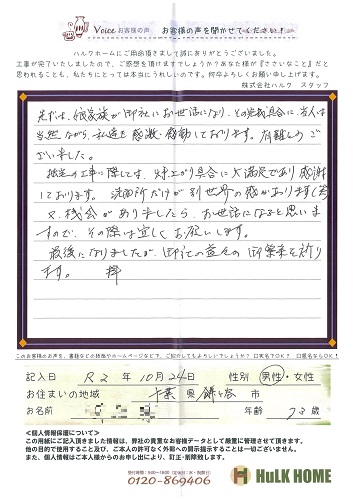 Voice お客様の声 お客様の声を聞かせてください!
ハルクホームにご用命頂きまして誠にありがとうございました。
工事が完了いたしましたので、ご感想を頂けますでしょうか?あなた様が『ささいなこと』だと
思われることも、私たちにとっては本当にうれしいのです。何卒よろしくお願い申し上げます。
株式会社ハルク スタッフ
先だっては、娘家族が御社にお世話になり、その完成具合に、当人は
当然ながら、私達も感激・感動しております。有難うご
ざいました。
の工事に際しては、仕上がり具合に大満足であり感謝
しております。洗面所だけが別世界の感があります(笑)
又、機会がありましたら、お世話になると思いま
すので、その際は宜しくお願いします。
最後になりましたが、御社の益々の御繁栄を祈り
ます。 拝
このお客様のお声を、書籍などの特典やホームページなどで、ご紹介してもよろしいでしょうか? 口実名でOK? 口匿名ならOK!
記入日 R2年10月24日 性別 男性・女性
お住まいの地域 千葉県鎌ヶ谷市
お名前 年齢 73歳
<個人情報保護について>
この用紙にご記入頂きました情報は、弊社の貴重なお客様データとして厳重に管理させて頂きます。
他の目的で使用すること、ご本人の許可なく外部への開示提示することは一切ございません。
また、個人情報はご本人様からのお申し出により、訂正・削除致します。
受付時間:9:00~18:00(定休日:水・祝祭日)
0120-869406
HuLK HOME